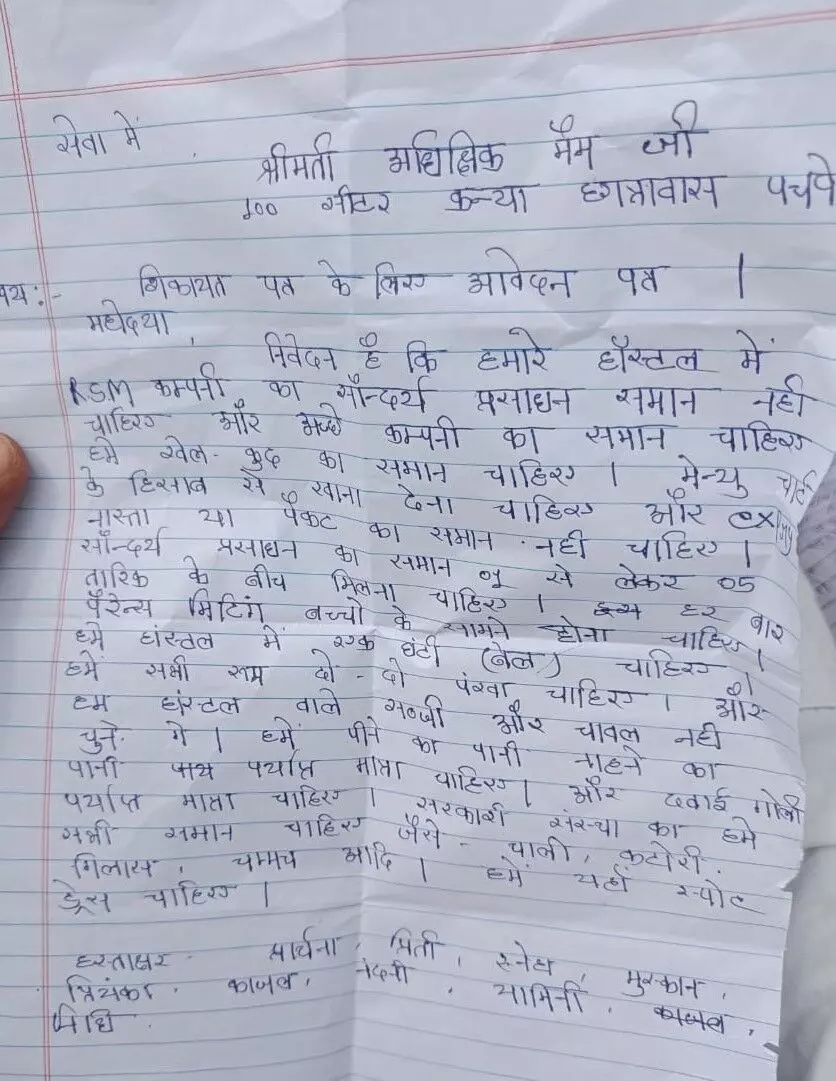 सेवा में
श्रीमती अधिक्षिक मैम जी
100 सीटर कन्या छात्रावास पचपे
षय:- शिकायत पत्र के लिए आवेदन पत्र |
महोदया,
निवेदन है कि हमारे हॉस्टल में
RSM कम्पनी का सौन्दर्य प्रसाधन समान नही
चाहिए और अच्छे कम्पनी का समान चाहिए
हमे खेल-कुद का समान चाहिए | मेन्यु चार्ट
के हिसाब से खाना देना चाहिए और
नास्ता या पैकट का समान नही चाहिए |
सौन्दर्य प्रसाधन का समान 01 से लेकर 05
तारिक के बीच मिलना चाहिए | हर बार
पैरेन्स मिटिंग बच्चो के सामने होना चाहिए |
हमे हांस्टल में एक घंटी (बेल) चाहिए |
हमें सभी रूम दो-दो पंखा चाहिए | और
हम हांस्टल वाले सब्जी और चावल नही
चुने गे | हमें पीने का पानी नाहने का
पानी पर्याप्त मात्रा चाहिए | और दवाई गोली
पर्याप्त मात्रा चाहिए | सरकारी संस्था का हमे
सभी समान चाहिए जैसे - थाली, कटोरी.
गिलास, चम्मच आदि | हमें यहाँ स्पोट
ड्रेस चाहिए |
हस्ताक्षर प्रार्थना, प्रिती, स्नेहा, मुस्कान,
प्रियंका, काजल, नंदनी, यामिनी, काजल,
निधि